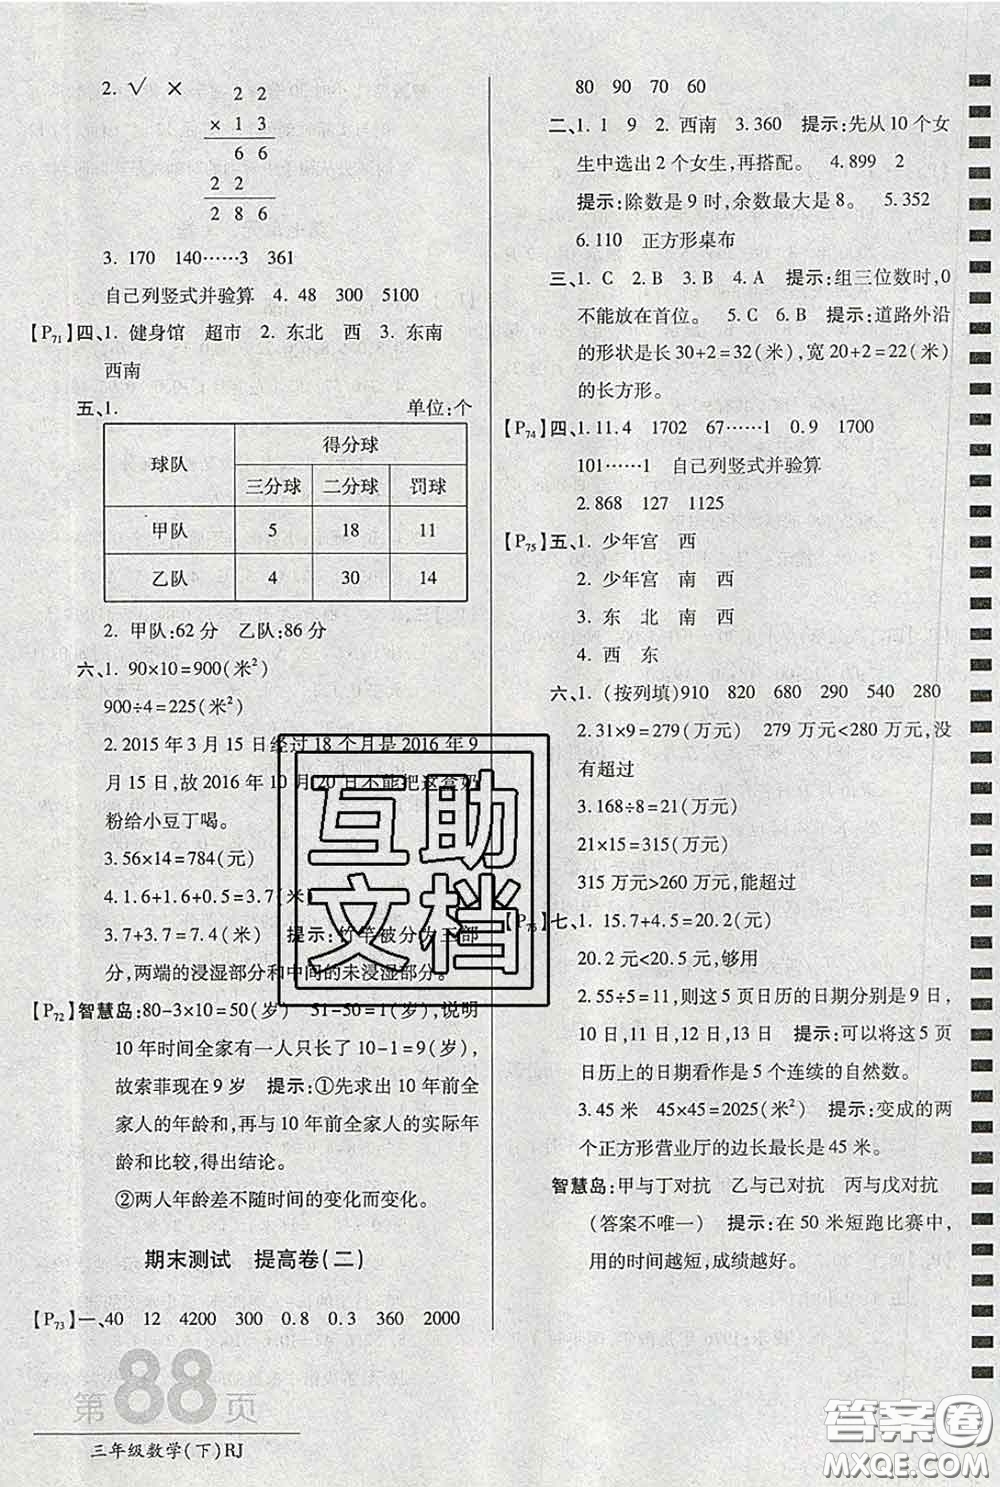 2. √ ×
2 2
× 1 3
6 6
2 2
2 8 6
3. 170 140……3 361
自己列竖式并验算 4. 48 300 5100
【P71】四、1. 健身馆 超市 2. 东北 西 3. 东南
西南
五、1. 单位:个
球队 得分球
三分球 二分球 罚球
甲队 5 18 11
乙队 4 30 14
2. 甲队:62 分 乙队:86 分
六、1. 90×10=900(米²)
900÷4=225(米²)
2. 2015 年 3 月 15 日经过 18 个月是 2016 年 9
月 15 日,故 2016 年 10 月 20 日不能把这盒奶
粉给小豆丁喝。
3. 56×14=784(元)
4. 1.6+1.6+0.5=3.7(米)
3.7+3.7=7.4(米) 提示:竹竿被分为三部
分,两端的浸湿部分和中间的未浸湿部分。
【P72】智慧岛:80-3×10=50(岁) 51-50=1(岁),说明
10 年时间全家有一人只长了 10-1=9(岁),
故索菲现在 9 岁 提示:①先求出 10 年前全
家人的年龄和,再与 10 年前全家人的实际年
龄和比较,得出结论。
②两人年龄差不随时间的变化而变化。
期末测试 提高卷(二)
【P73】一、40 12 4200 300 0.8 0.3 360 2000
第88页
三年级数学(下)RJ
80 90 70 60
二、1. 1 9 2. 西南 3. 360 提示:先从 10 个女
生中选出 2 个女生,再搭配。 4. 899 2
提示:除数是 9 时,余数最大是 8。 5. 352
6. 110 正方形桌布
三、1. C 2. B 3. B 4. A 提示:组三位数时,0
不能放在首位。 5. C 6. B 提示:道路外沿
的形状是长 30+2=32(米),宽 20+2=22(米)
的长方形。
【P74】四、1. 11.4 1702 67……1 0.9 1700
101……1 自己列竖式并验算
2. 868 127 1125
【P75】五、1. 少年宫 西
2. 少年宫 南 西
3. 东 北 南 西
4. 西 东
六、1. (按列填)910 820 680 290 540 280
2. 31×9=279(万元) 279 万元<280 万元,没
有超过
3. 168÷8=21(万元)
21×15=315(万元)
315 万元>260 万元,能超过
【P75】七、1. 15.7+4.5=20.2(元)
20.2 元<20.5 元,够用
2. 55÷5=11,则这 5 页日历的日期分别是 9 日,
10 日,11 日,12 日,13 日 提示:可以将这 5 页
日历上的日期看作是 5 个连续的自然数。
3. 45 米 45×45=2025(米²) 提示:变成的两
个正方形营业厅的边长最长是 45 米。
智慧岛:甲与丁对抗 乙与己对抗 丙与戊对抗
(答案不唯一) 提示:在 50 米短跑比赛中,
用的时间越短,成绩越好。
互助
文档
答案卷
MXQE.COM